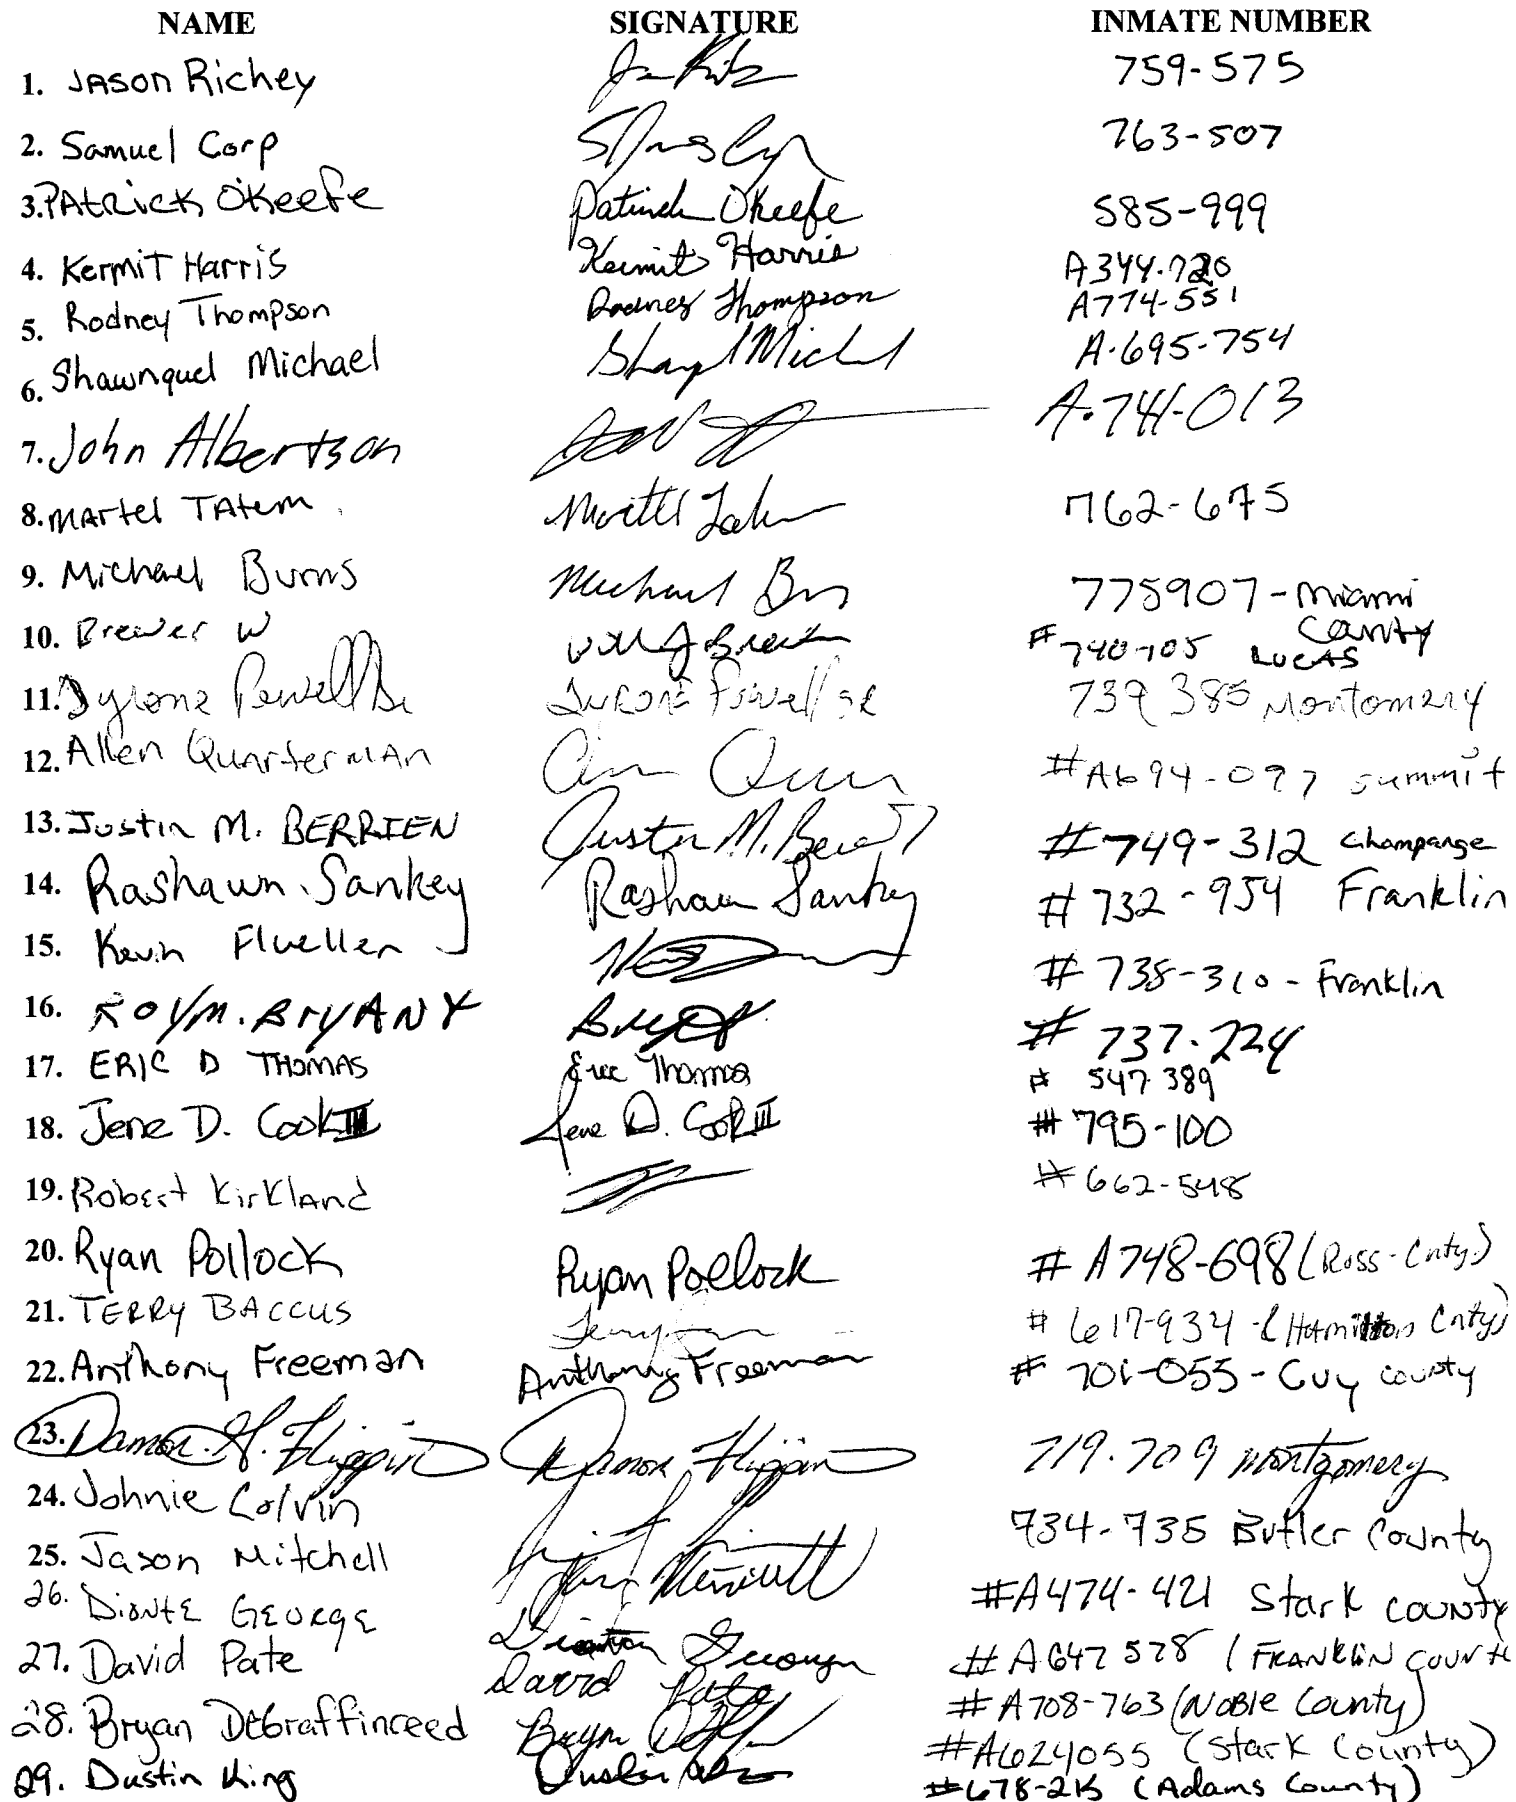 NAME SIGNATURE INMATE NUMBER
1. JASON Richey 759-575
2. Samuel Corp 763-507
3. PAtRicK O'KeeFe Patrick O'Keefe 585-999
4. Kermit Harris Kermit Harris A344-720
5. Rodney Thompson Rodney Thompson A774-551
6. Shawnquel Michael A-695-754
7. John Albertson A-741-013
8. MArtel TAtem 762-675
9. Michael Burns Michael 775907-Miami County
10. Brewer W #740-105 LUCAS
11. Tyrone Powell Sr TyRONE Powell SR 739 385 Montomery
12. Allen QuarterMAn #A694-097 summit
13. Justin M. BERRIEN Justin M. #749-312 Champange
14. Rashawn Sankey Rashawn Sankey #732-954 Franklin
15. Kevin Fluellen #738-310-Franklin
16. ROY M. BrYANT #737-224
17. ERIC D THOMAS Eric Thomas # 547 389
18. Jene D. Cook III Jene D. Cook III #795-100
19. Robert KirKlAnd #662-548
20. Ryan Pollock Ryan Pollock #A748-698 (Ross-Cnty)
21. TERRY BACCUS #617-934-(Hamilton Cnty)
22. Anthony Freeman Anthony Freeman # 701-055-Cuy county
23. Damon Damon 719-709 Montgomery
24. Johnie Colvin
25. Jason Mitchell 734-735 Butler County
26. DiontE GEORgE #A474-421 Stark County
27. David Pate David Pate #A647 578 (FRANKLIN
28. Bryan DeGraffinreed Bryan #A708-763 (Noble County)
#A624055 (Stark County)
29. Dustin King #678-215 (Adams County)